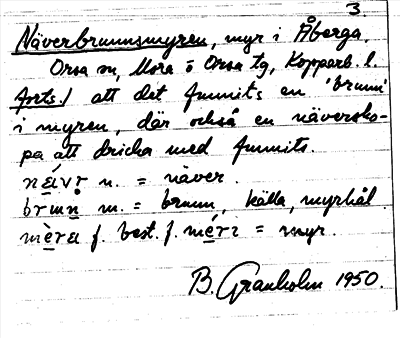 3.
Näverbrunnsmyren, myr i Åberga.
Orsa sn, Mora o Orsa tg, Kopparb. l.
forts./ att det funnits en 'brunn'
i myren, där också en näversko-
pa att dricka med funnits.
návr n. = näver
brun m. = brunn, källa, myrhål.
f. best. f. = myr.
B. Granholm 1950.